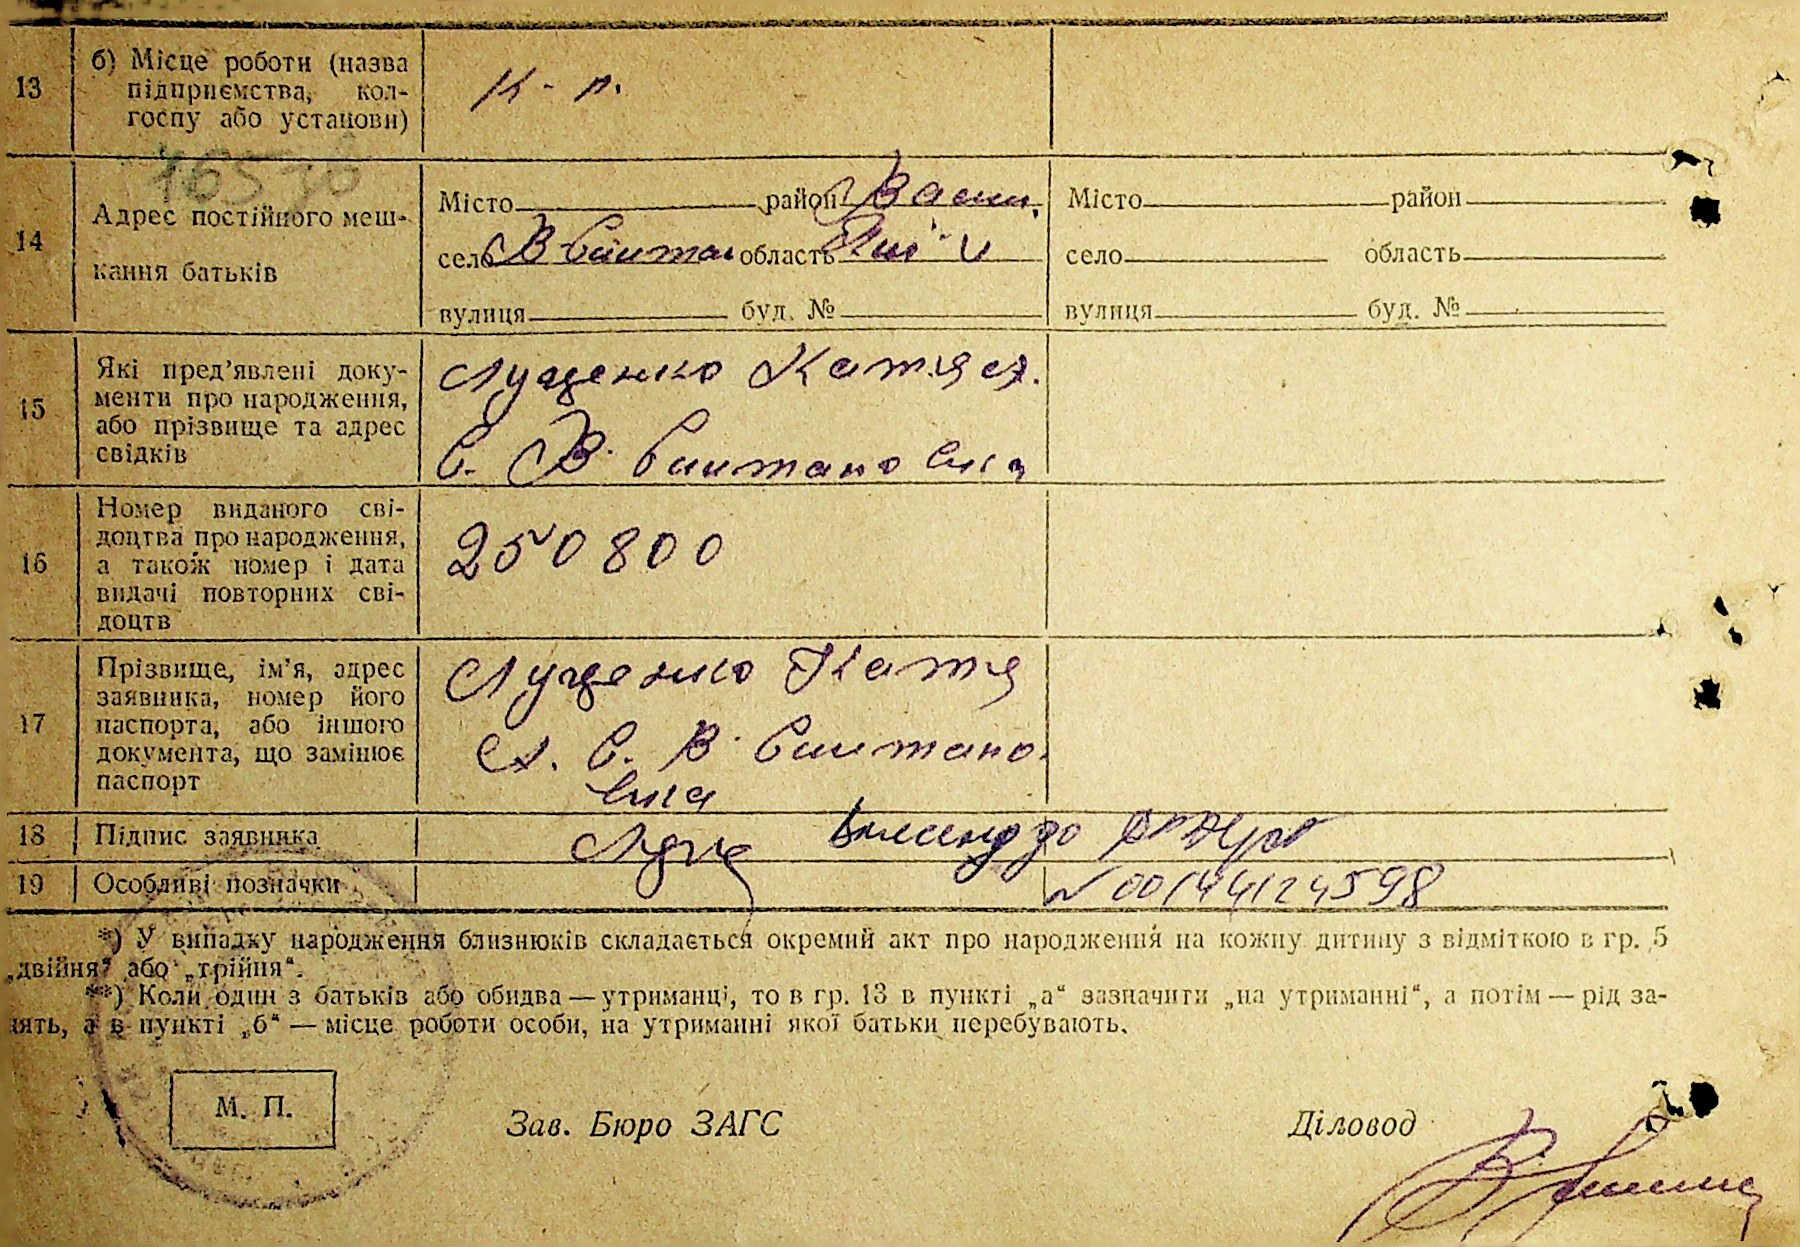 13 б) Місце роботи (назва
підприємства, кол-
госпу або установи)
к - п.
14 Адрес постійного меш-
кання батьків
Місто район Васи.
село В-Баштан область
вулиця буд. №
Місто район
село область
вулиця буд. №
15 Які пред’явлені доку-
менти про народження,
або прізвище та адрес
свідків
Луценко Катя
С. В. Баштановка
16 Номер виданого сві-
доцтва про народження,
а також номер і дата
видачі повторних сві-
доцтв
250800
17 Прізвище, ім’я, адрес
заявника, номер його
паспорта, або іншого
документа, що замінює
паспорт
Луценко Катя
С. В. Баштано-
вка
18 Підпис заявника
19 Особливі позначки
№ 00144124598
*) У випадку народження близнюків складається окремий акт про народження на кожну дитину з відміткою в гр. 5
„двійня“ або „трійня“.
**) Коли один з батьків або обидва — утриманці, то в гр. 13 в пункті „а“ зазначити „на утриманні“, а потім — рід за-
нять, а в пункті „б“ — місце роботи особи, на утриманні якої батьки перебувають.
М. П.
Зав. Бюро ЗАГС
Діловод